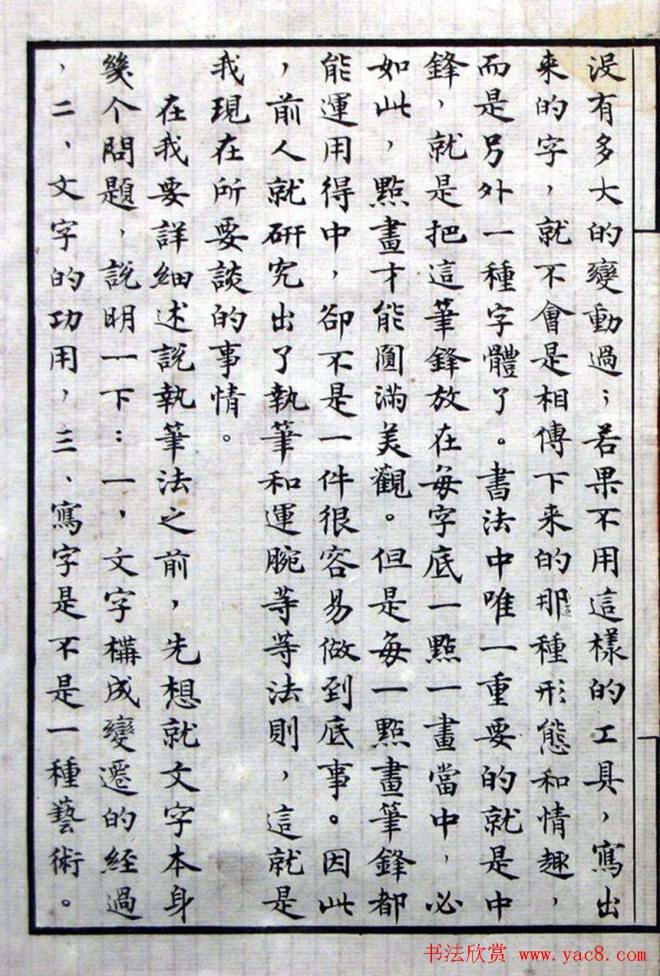 没有多大的變動過；若果不用這樣的工具，寫出
來的字，就不會是相傳下來的那種形態和情趣，
而是另外一種字體了。書法中唯一重要的就是中
鋒，就是把這筆鋒放在每字底一點一畫當中，必
如此，點畫才能圓滿美觀。但是每一點畫筆鋒都
能運用得中，卻不是一件很容易做到底事。因此
，前人就研究出了執筆和運腕等等法則，這就是
我現在所要談的事情。
在我要詳細述說執筆法之前，先想就文字本身
幾个問題，說明一下：一，文字構成變遷的經過
，二、文字的功用，三、寫字是不是一種藝術。
书法欣赏 www.yac8.com